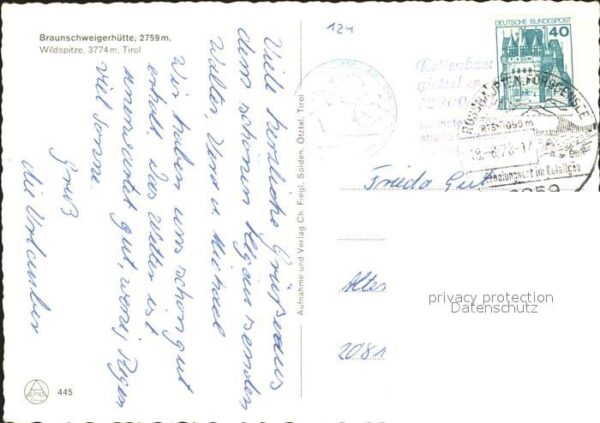 Braunschweigerhütte, 2759 m,
Wildspitze, 3774 m, Tirol
124
DEUTSCHE BUNDESPOST
40
Viele herzliche Grüße aus
dem schönen Allgäu senden
Walter, Vera u. Michael
Wir haben uns schon gut
erholt. Das Wetter ist
gut, wenig Regen
viel Sonne.
Gruß
die Urlauber
Aufnahme und Verlag Ch. Fiegl, Sölden, Ötztal, Tirol
ROSSHAUPTEN FORGGENSEE
18.-6.78-17
Erholungsort im Ostallgäu
8959
Frieda Gut
Alten
2081
privacy protection
Datenschutz
445